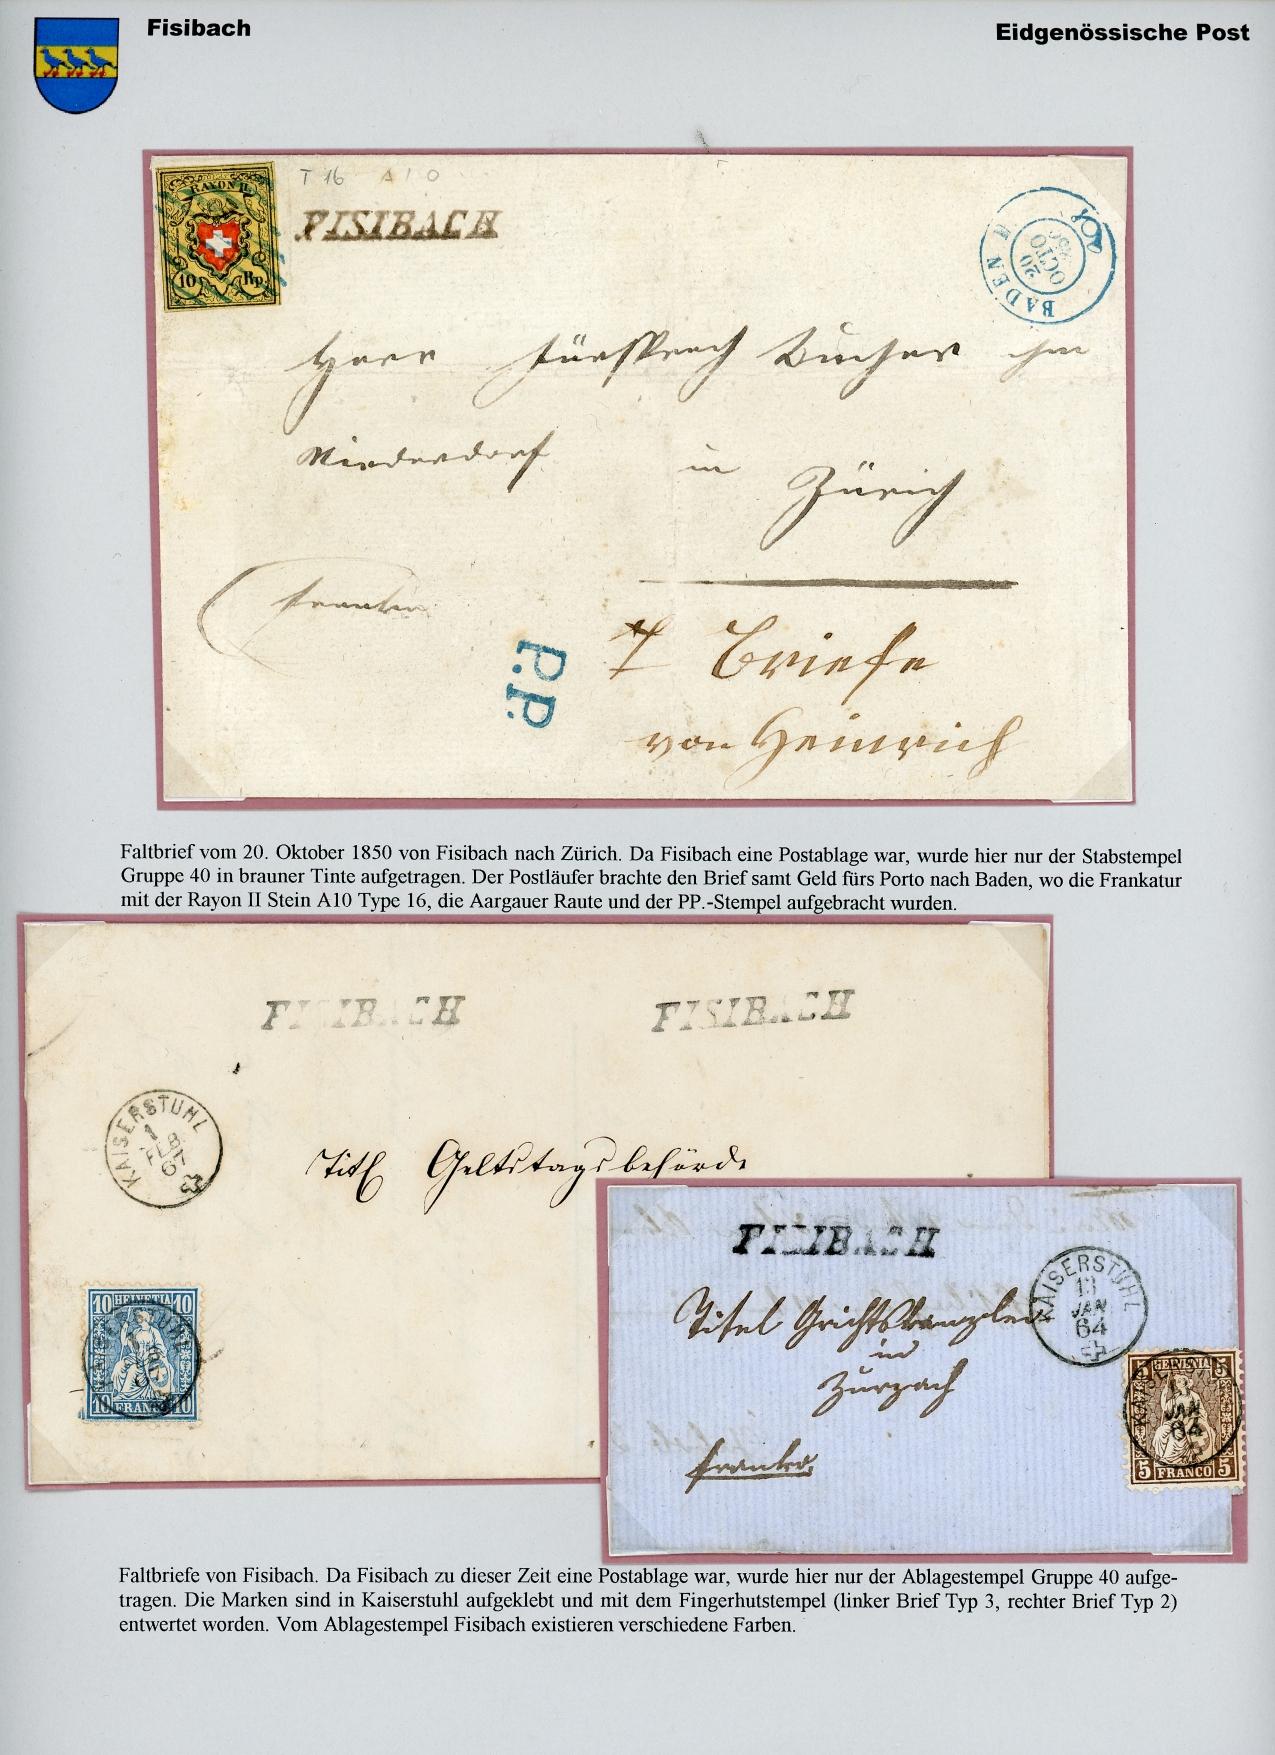 Fisibach
Eidgenössische Post
RAYON II.
10 Rp
T 16 A 1 0
FISIBACH
BADEN
20
OCTO
Herr Fürsprech Bucher im
Niederdorf in Zürich
franko
P.P.
7 Briefe
von Heinrich
Faltbrief vom 20. Oktober 1850 von Fisibach nach Zürich. Da Fisibach eine Postablage war, wurde hier nur der Stabstempel
Gruppe 40 in brauner Tinte aufgetragen. Der Postläufer brachte den Brief samt Geld fürs Porto nach Baden, wo die Frankatur
mit der Rayon II Stein A10 Type 16, die Aargauer Raute und der PP.-Stempel aufgebracht wurden.
FISIBACH FISIBACH
KAISERSTUHL
1
FEB
67
Titl Geltstagsbehörde
10 HELVETIA 10
10 FRANCO 10
FISIBACH
KAISERSTUHL
13
JAN
64
Titel Grichtskanzlei
in
Zurzach
franko.
5 HELVETIA 5
KAISERSTUHL
JAN
64
5 FRANCO 5
Faltbriefe von Fisibach. Da Fisibach zu dieser Zeit eine Postablage war, wurde hier nur der Ablagestempel Gruppe 40 aufge-
tragen. Die Marken sind in Kaiserstuhl aufgeklebt und mit dem Fingerhutstempel (linker Brief Typ 3, rechter Brief Typ 2)
entwertet worden. Vom Ablagestempel Fisibach existieren verschiedene Farben.